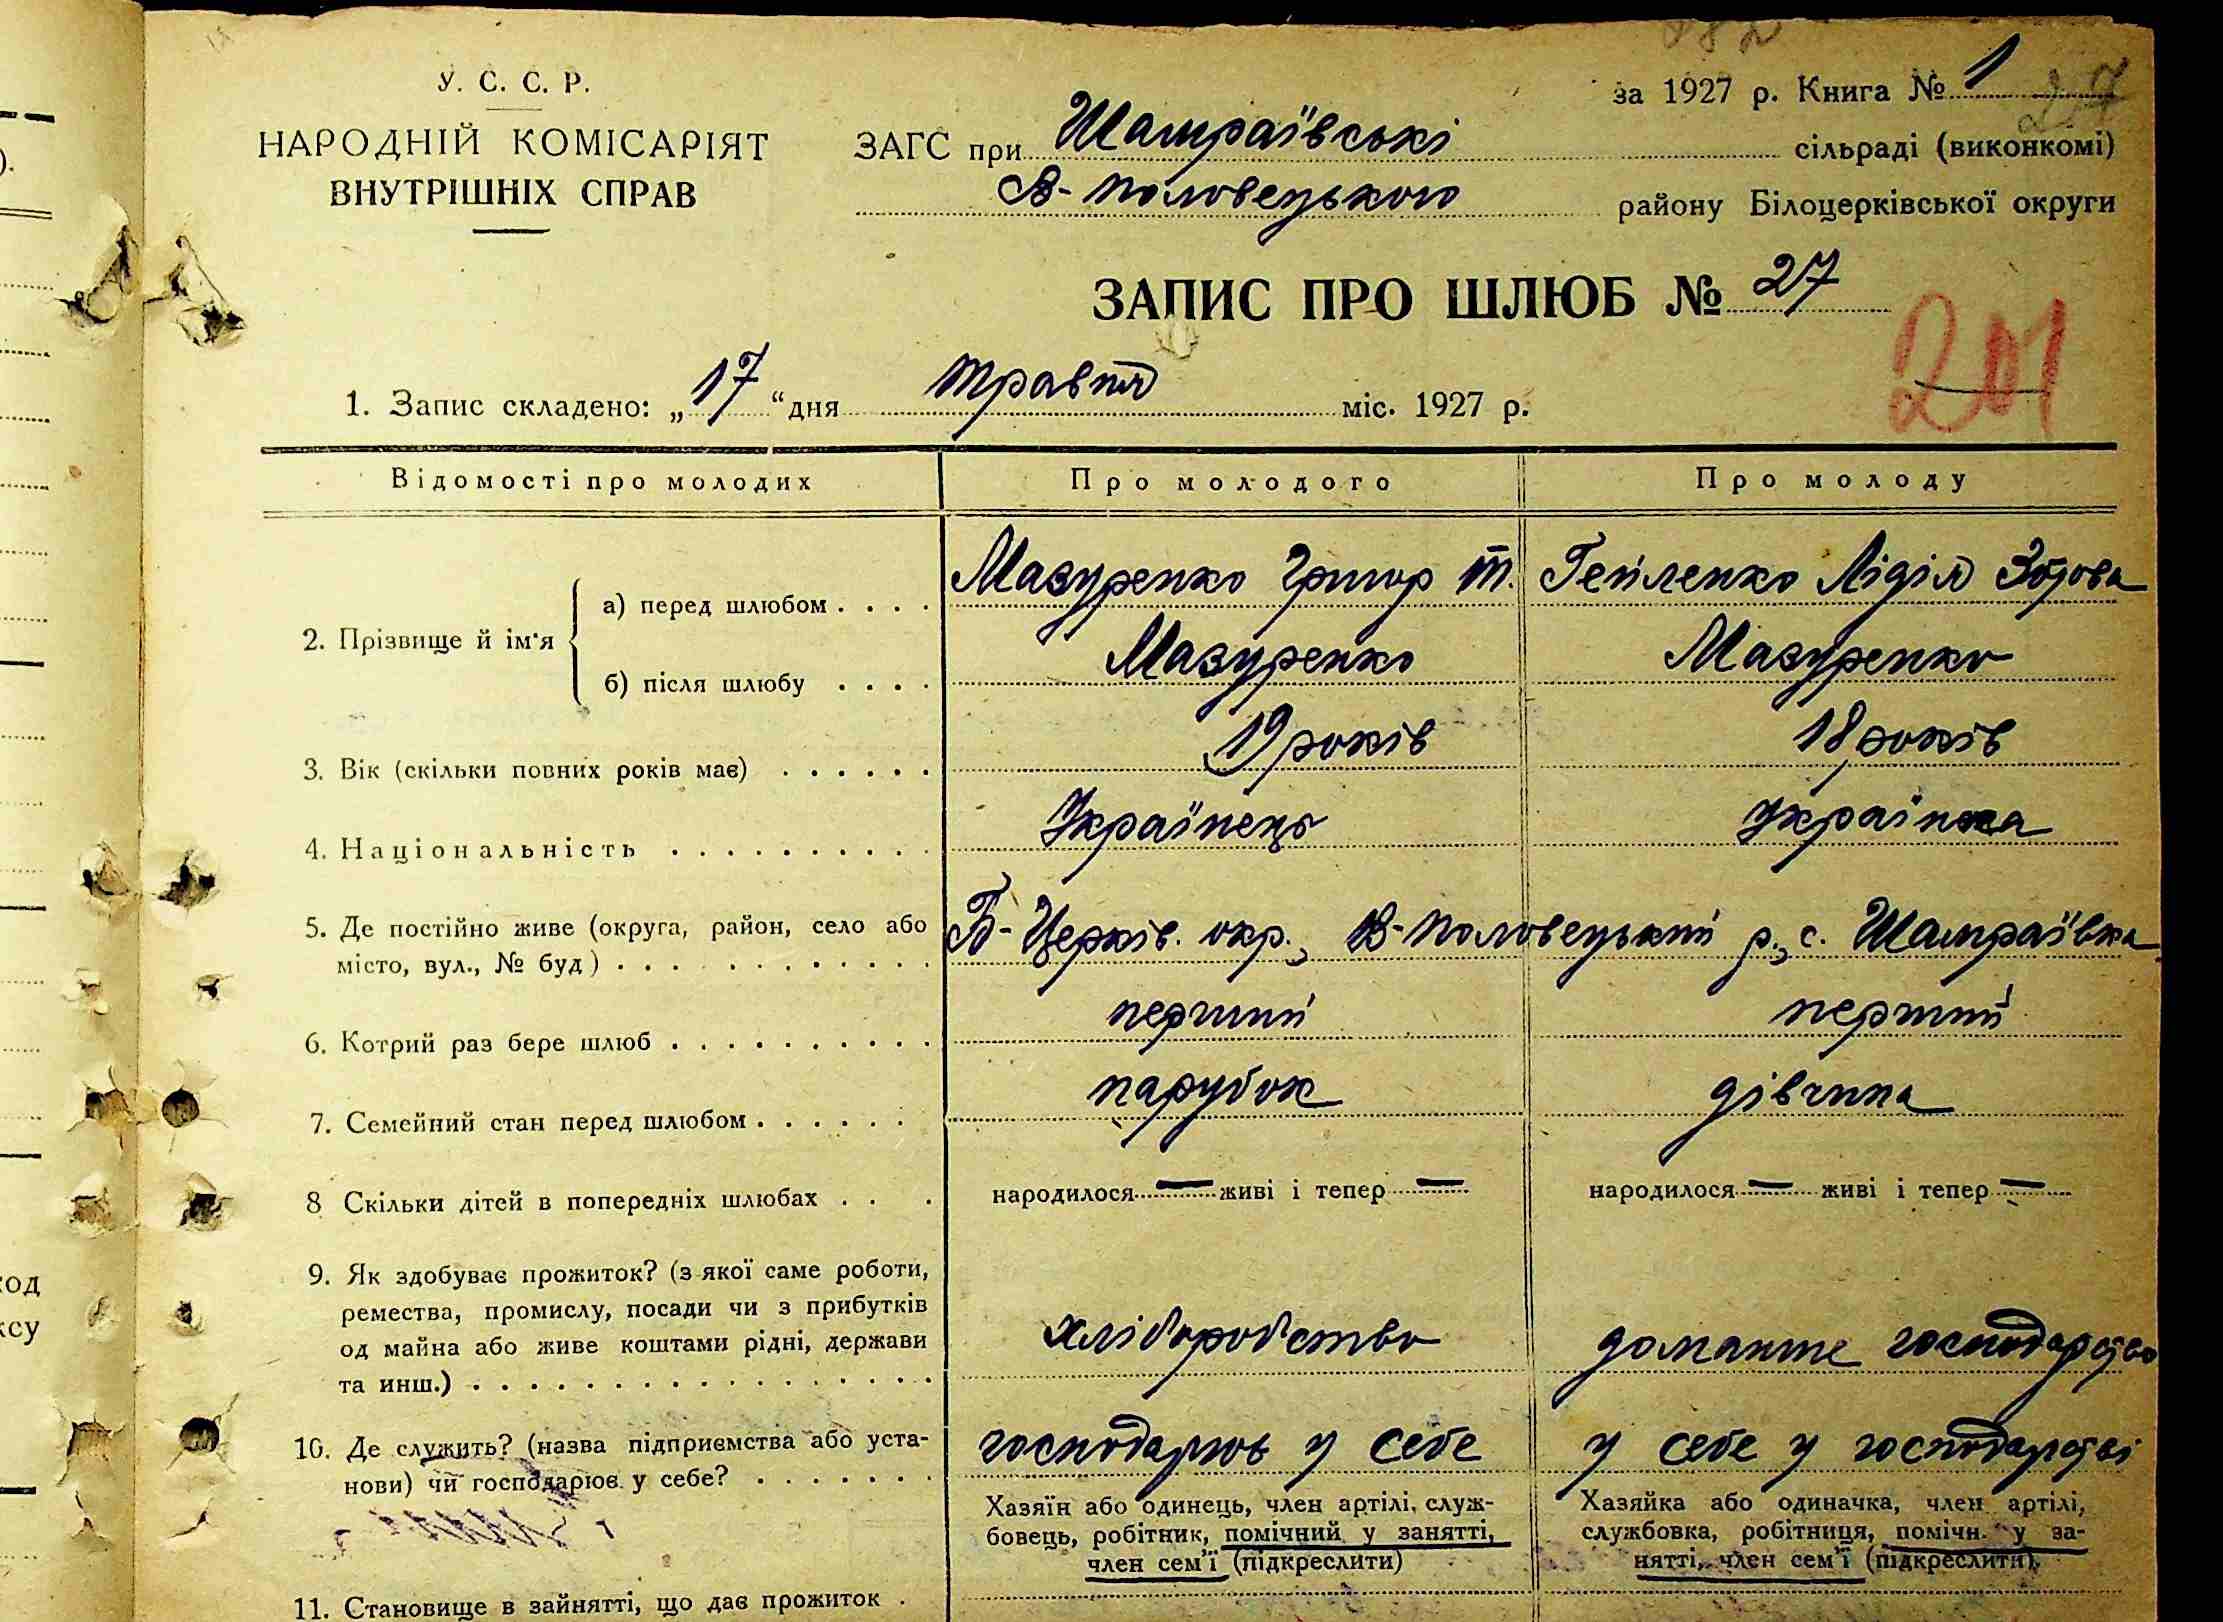 У. С. С. Р.
НАРОДНІЙ КОМІСАРІЯТ
ВНУТРІШНІХ СПРАВ
за 1927 р. Книга № 1
27
ЗАГС при Шамраївські сільраді (виконкомі)
В-Половецького району Білоцерківської округи
ЗАПИС ПРО ШЛЮБ № 27
201
1. Запис складено: „17“ дня травня міс. 1927 р.
Відомості про молодих Про молодого Про молоду
2. Прізвище й ім'я
а) перед шлюбом . . . . Мазуренко Григор Т. Лідія
б) після шлюбу . . . . Мазуренко Мазуренко
3. Вік (скільки повних років має) . . . . . . 19 років 18 років
4. Національність . . . . . . . . . . Українець Українка
5. Де постійно живе (округа, район, село або
місто, вул., № буд) . . . . . . . . . . . Б-Церків. окр., В-Половецький р., с. Шамраївка
6. Котрий раз бере шлюб . . . . . . . . . . перший перший
7. Семейний стан перед шлюбом . . . . . . парубок дівчина
8 Скільки дітей в попередніх шлюбах . . . народилося — живі і тепер — народилося — живі і тепер —
9. Як здобуває прожиток? (з якої саме роботи,
ремества, промислу, посади чи з прибутків
од майна або живе коштами рідні, держави
та инш.) . . . . . . . . . . . . . . . . . хліборобство домашнє господарство
10. Де служить? (назва підприємства або уста-
нови) чи господарює у себе? . . . . . . . господарює у себе у себе у господарстві
Хазяїн або одинець, член артілі, служ-
бовець, робітник, помічний у занятті,
член сем'ї (підкреслити)
Хазяйка або одиначка, член артілі,
службовка, робітниця, помічн. у за-
нятті, член сем'ї (підкреслити).
11. Становище в зайнятті, що дає прожиток .